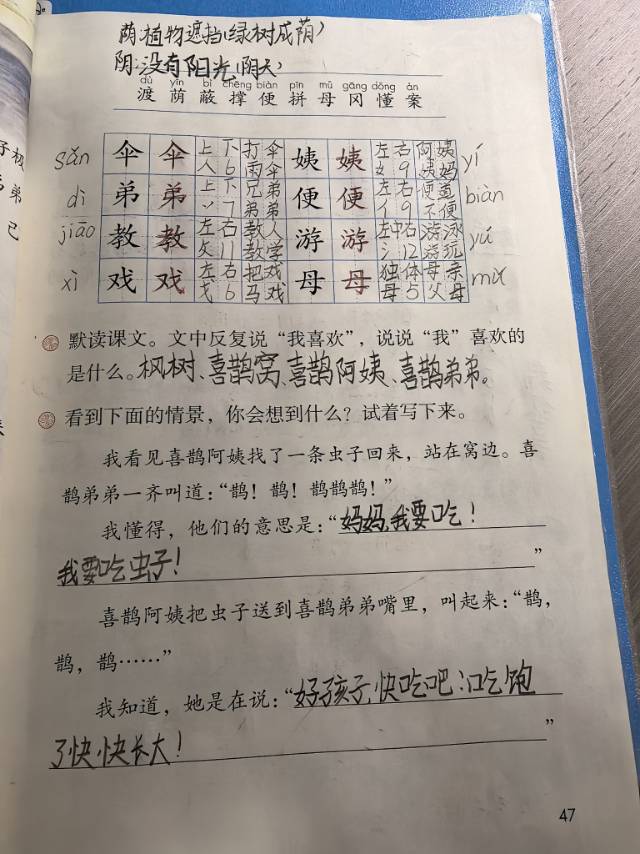 荫:植物遮挡(绿树成荫)
阴:没有阳光(阴天)
dù yīn bì chēng biàn pīn mǔ gāng dǒng àn
渡 荫 蔽 撑 便 拼 母 冈 懂 案
sǎn 伞 伞 上下 打伞 姨 姨 左右 阿姨 yí
人 6 雨伞 女 9 姨妈
dì 弟 弟 上下 兄弟 便 便 左右 便道 biàn
丷 7 弟弟 亻 9 不便
jiāo 教 教 左右 教人 游 游 左中右 游泳 yú
攵 11 教学 氵 12 游玩
xì 戏 戏 左右 把戏 母 母 独体 母亲
戈 6 马戏 母 5 父母
默读课文。文中反复说“我喜欢”,说说“我”喜欢的
是什么。枫树、喜鹊窝、喜鹊阿姨、喜鹊弟弟。
看到下面的情景,你会想到什么?试着写下来。
我看见喜鹊阿姨找了一条虫子回来,站在窝边。喜
鹊弟弟一齐叫道:“鹊!鹊!鹊鹊鹊!”
我懂得,他们的意思是:“妈妈,我要吃!
我要吃虫子!”
喜鹊阿姨把虫子送到喜鹊弟弟嘴里,叫起来:“鹊,
鹊,鹊……”
我知道,她是在说:“好孩子,快吃吧!吃饱
了快快长大!”
47